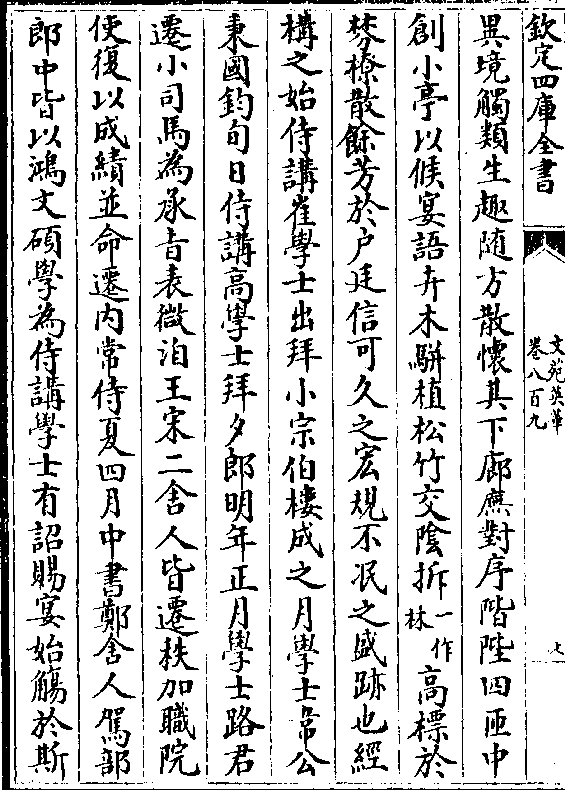 欽定四庫全書
文苑英華
卷八百九
七
異境觸類生趣随方散懷其下廊廡對序階陛四匝中
創小亭以候宴語卉木駢植松竹交陰拆一作林高標於
棼橑散餘芳於户廷信可久之宏規不泯之盛跡也經
構之始侍講崔學士出拜小宗伯樓成之月學士韋公
秉國鈞旬日侍講高學士拜夕郎明年正月學士路君
遷小司馬為承㫖表微洎王宋二舍人皆遷秩加職院
使復以成績並命遷内常侍夏四月中書鄭舍人駕部
郎中皆以鴻文碩學為侍講學士有詔賜宴始觴於斯